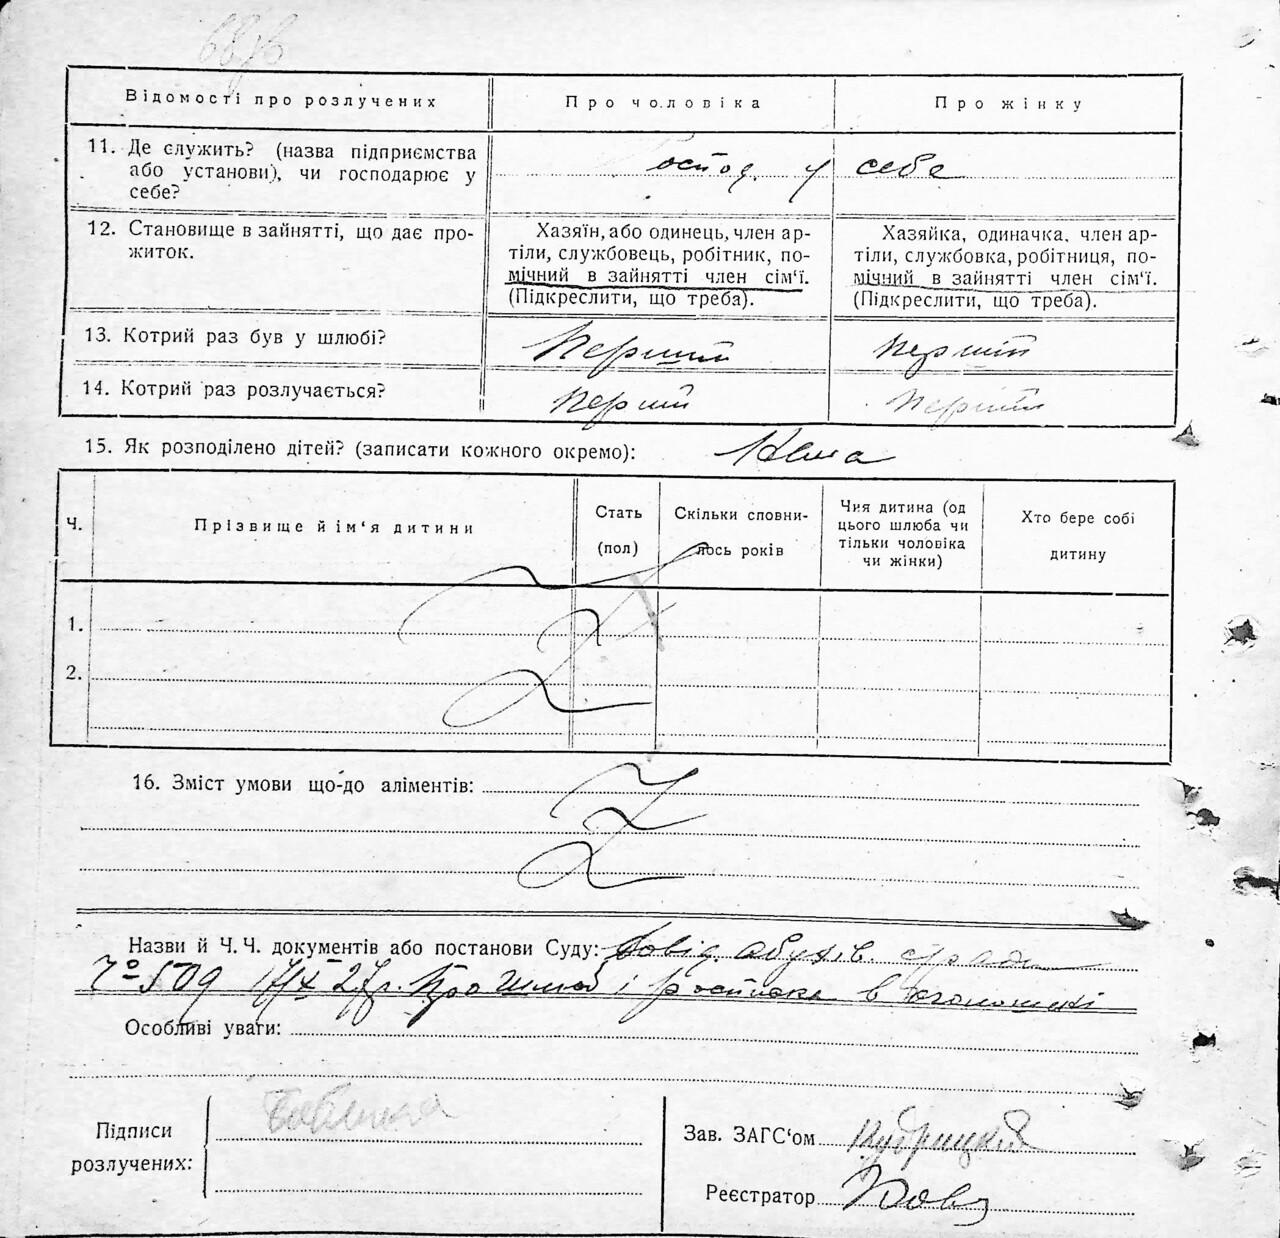 Відомості про розлучених
Про чоловіка
Про жінку
11. Де служить? (назва підприємства
або установи), чи господарює у
себе?
Господ. у себе
12. Становище в зайнятті, що дає про-
житок.
Хазяїн, або одинець, член ар-
тіли, службовець, робітник, по-
мічний в зайнятті член сім‘ї.
(Підкреслити, що треба).
Хазяйка, одиначка, член ар-
тіли, службовка, робітниця, по-
мічний в зайнятті член сім‘ї.
(Підкреслити, що треба).
13. Котрий раз був у шлюбі?
Перший
Перший
14. Котрий раз розлучається?
Перший
Перший
15. Як розподілено дітей? (записати кожного окремо):
Нема
Ч.
Прізвище й ім‘я дитини
Стать
(пол)
Скільки сповни-
лось років
Чия дитина (од
цього шлюба чи
тільки чоловіка
чи жінки)
Хто бере собі
дитину
1.
2.
16. Зміст умови що-до аліментів:
Назви й Ч.Ч. документів або постанови Суду: Довід. Обухів. с/ради
№ 509 17/IX 27 р. про шлюб і в
Особливі уваги:
Підписи
розлучених:
Зав. ЗАГС‘ом Кудрицкий
Реєстратор